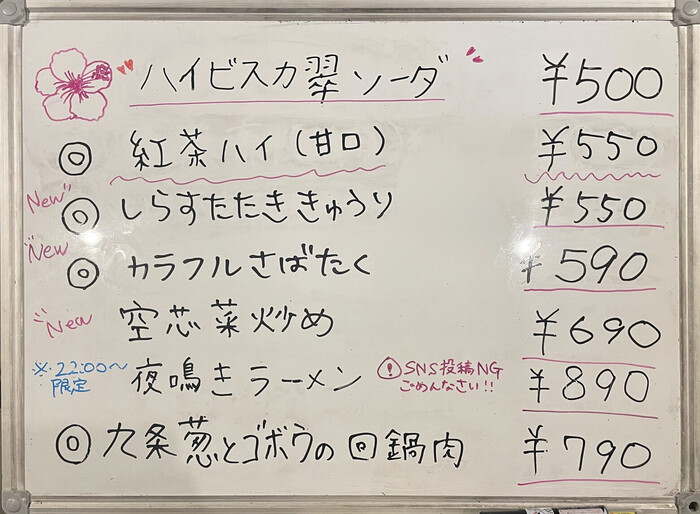 ハイビスカ翠ソーダ ¥500
◎ 紅茶ハイ(甘口) ¥550
New ◎ しらすたたききゅうり ¥550
New ◎ カラフルさばたく ¥590
New 空芯菜炒め ¥690
※22:00〜限定 夜鳴きラーメン ! SNS投稿NG ごめんなさい!! ¥890
◎ 九条葱とゴボウの回鍋肉 ¥790